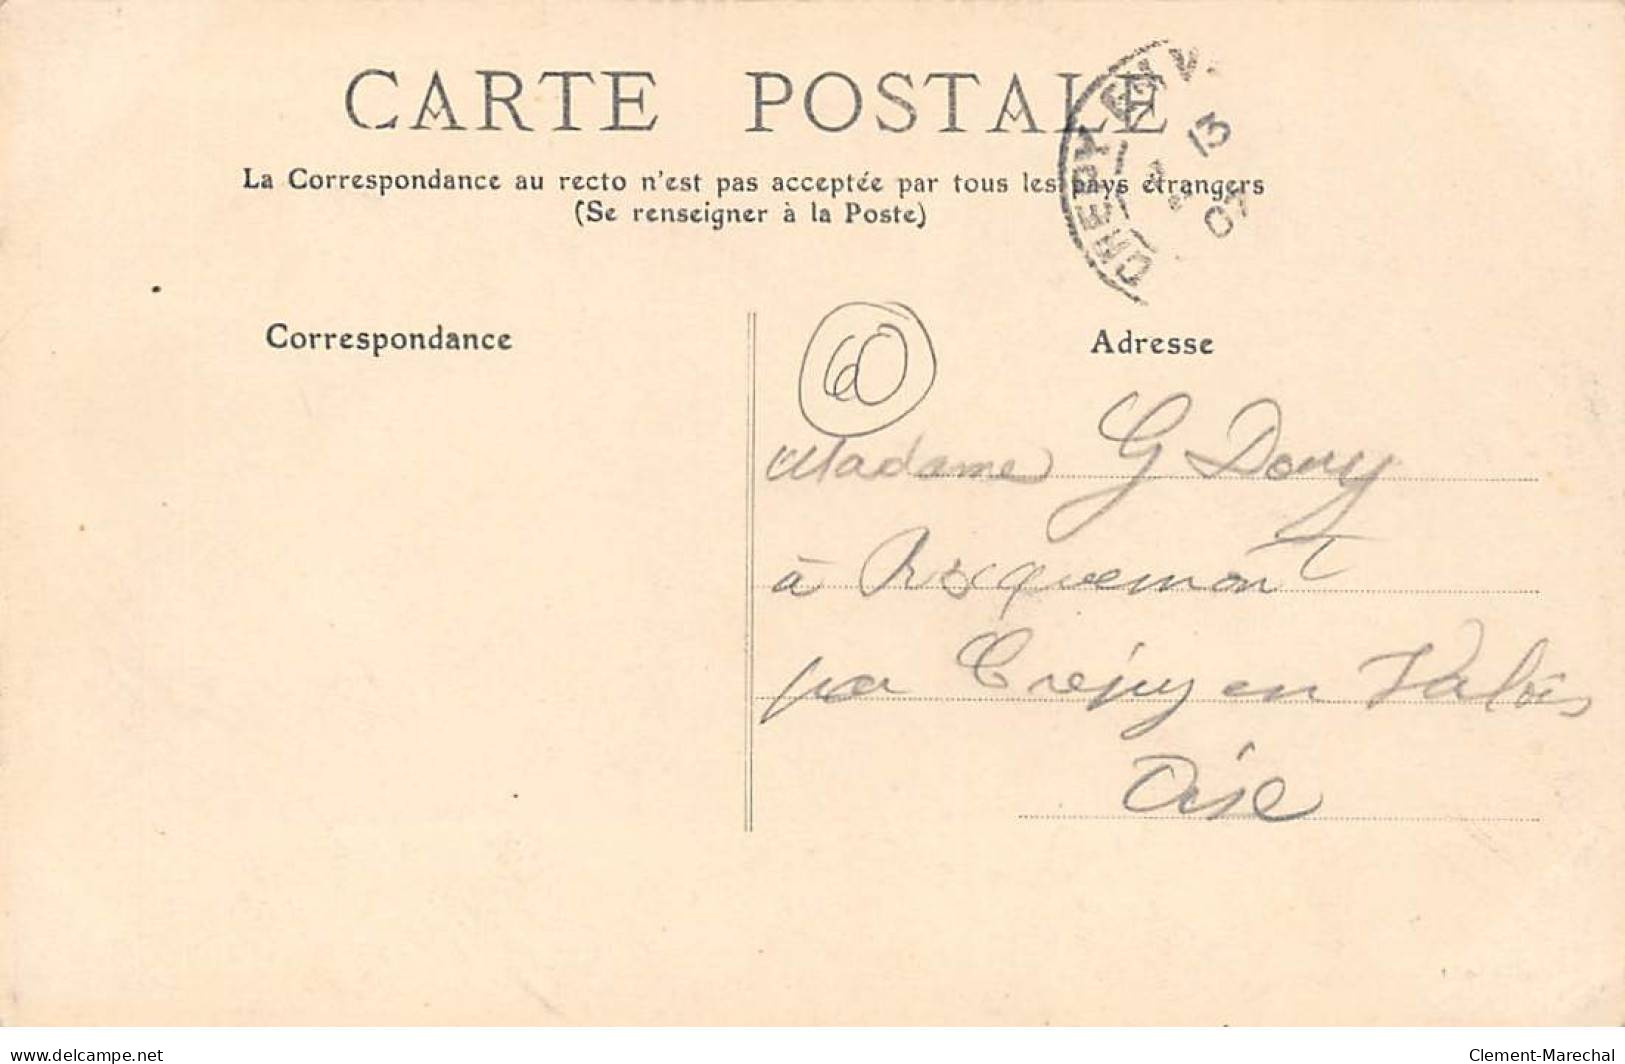 CARTE POSTALE
CREPY EN V
13
07
La Correspondance au recto n'est pas acceptée par tous les pays étrangers
(Se renseigner à la Poste)
Correspondance
60
Adresse
Madame G Doury
à Rocquemont
par Crépy en Valois
Oise
www.delcampe.net
Clement-Marechal